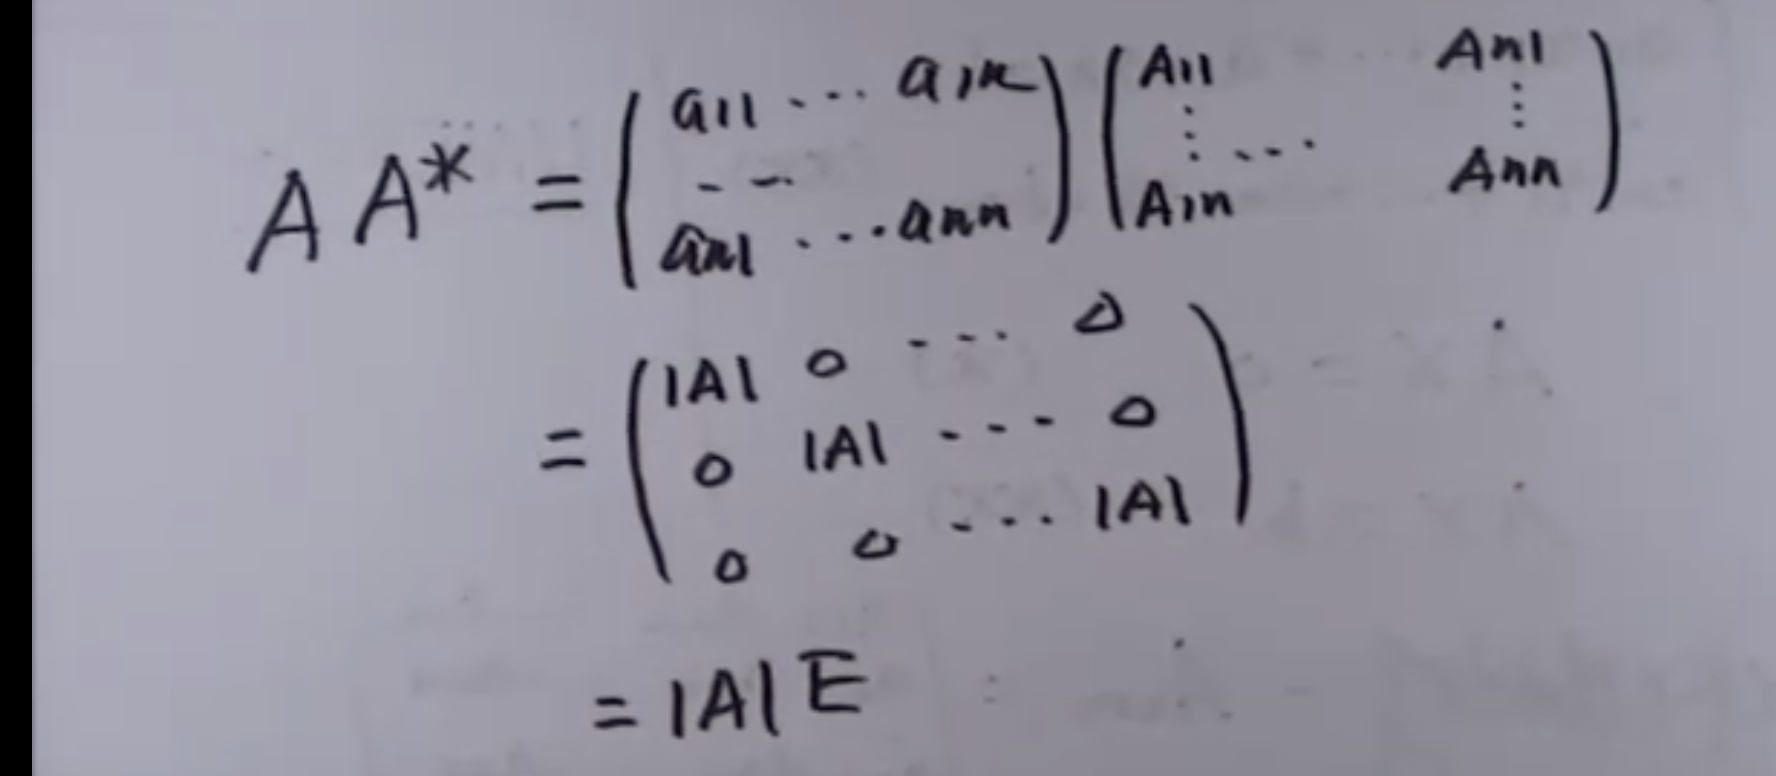 AA* = ( a11 ... a1n -- an1 ... ann ) ( A11 An1 ⋮ ... ⋮ A1n Ann )
= ( |A| 0 ... 0
0 |A| --- 0
0 0 ... |A| )
= |A|E